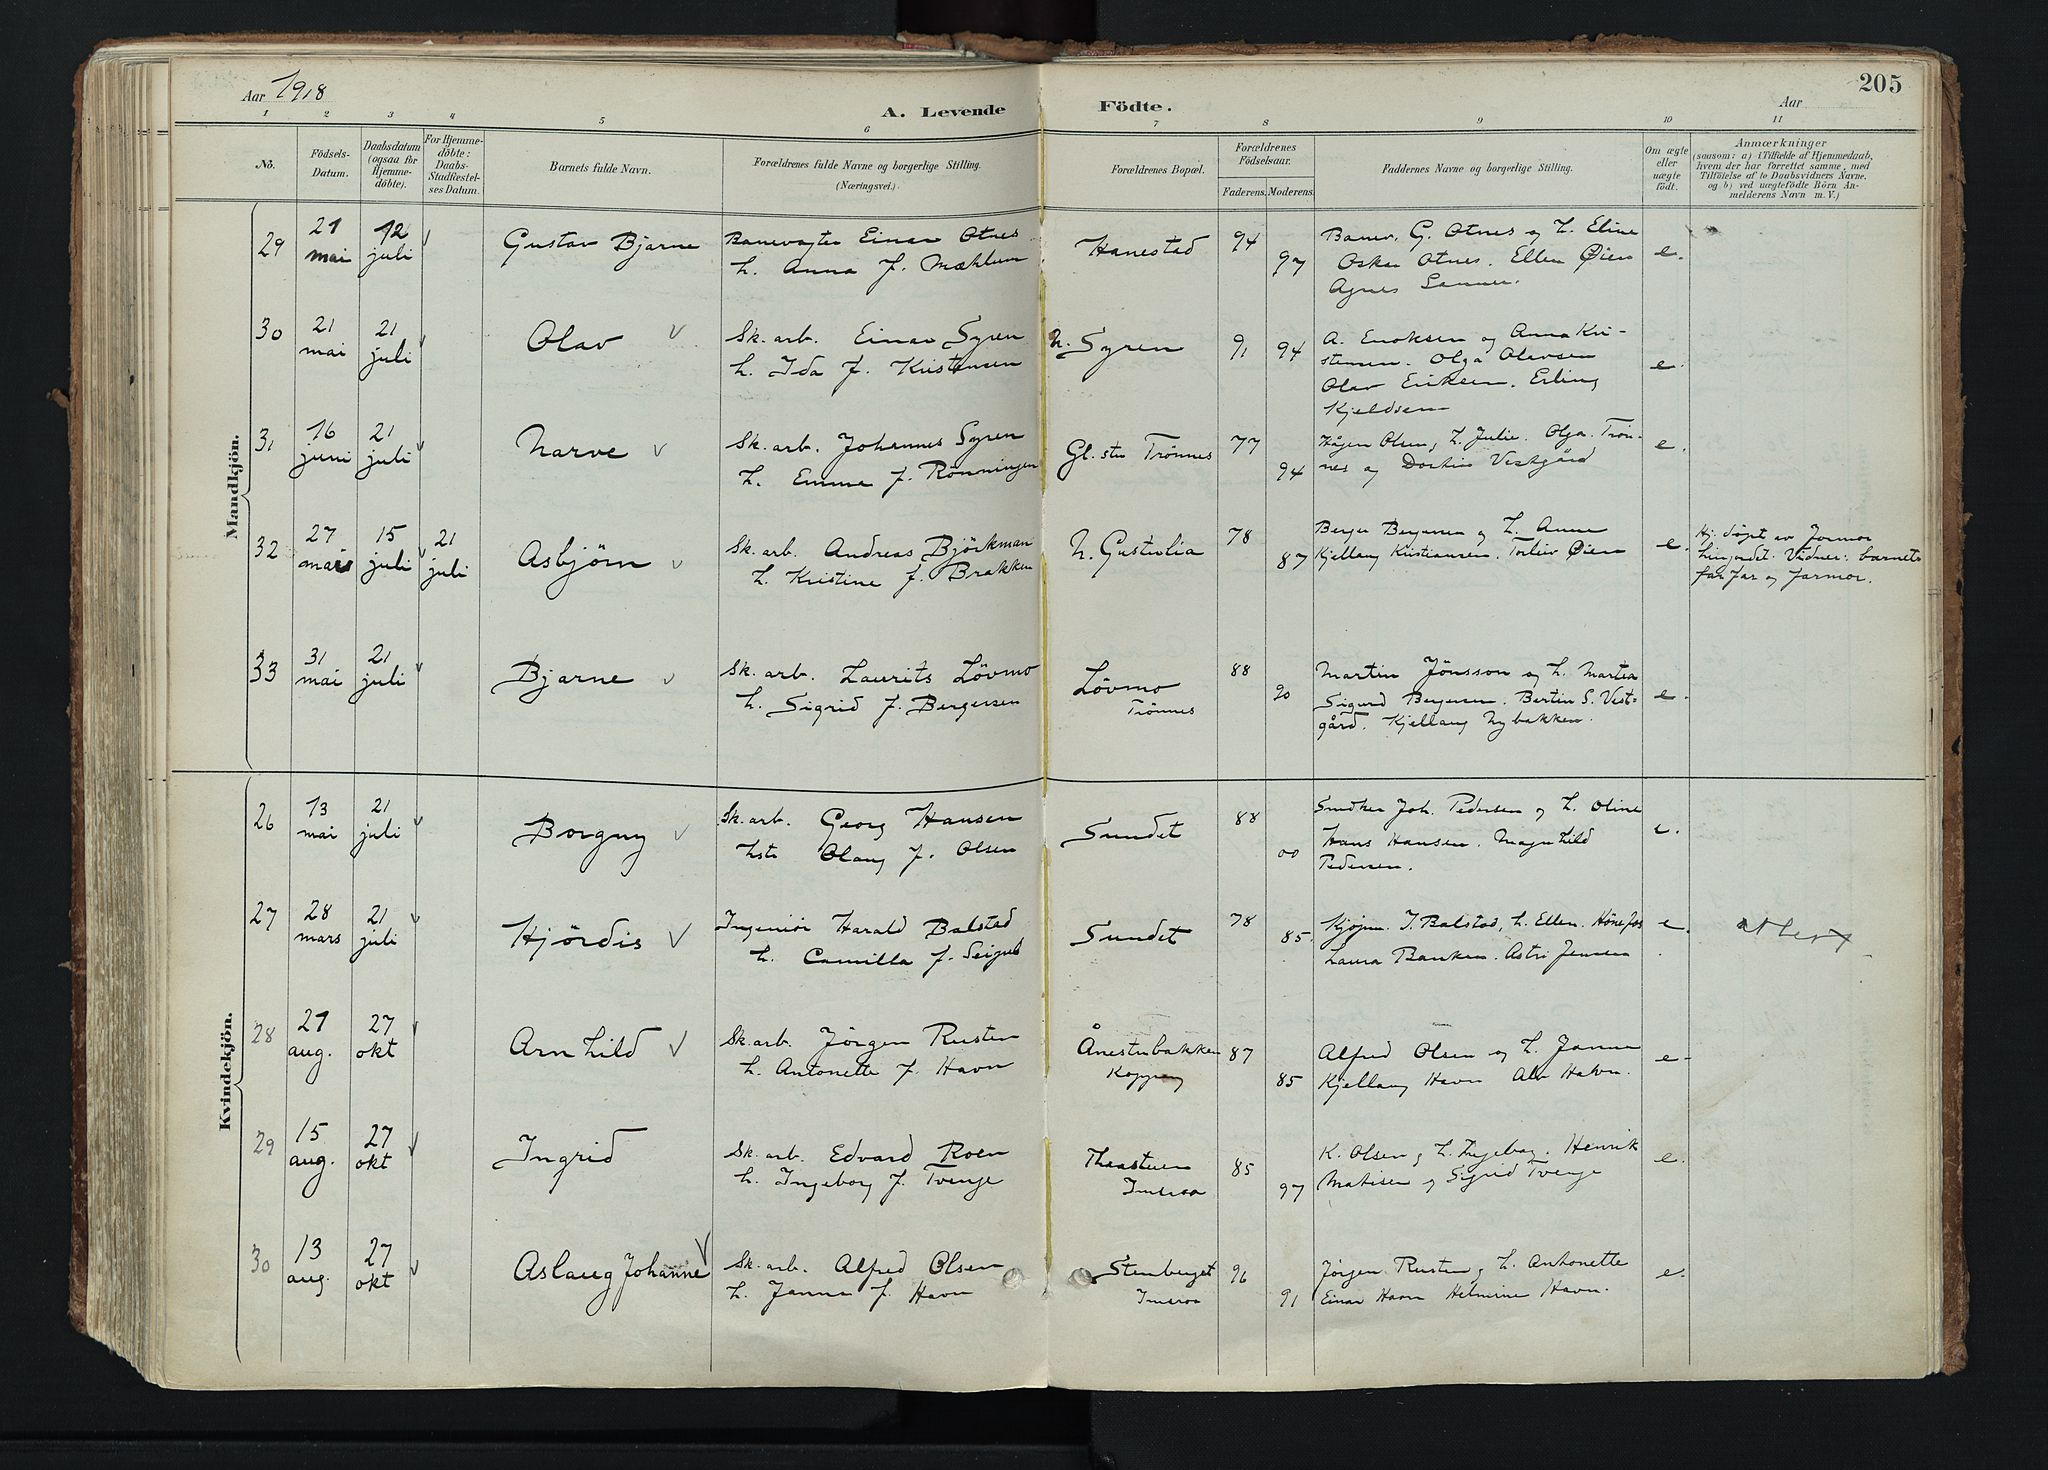 Aar 1918
A. Levende Födte.
Aar
205
1 2 3 4 5 6 7 8 9 10 11
No.
Födsels-Datum.
Daabsdatum (ogsaa för Hjemme-döbte).
For Hjemme-döbte: Daabs-Stadfæstel-ses Datum.
Barnets fulde Navn.
Forældrenes fulde Navne og borgerlige Stilling. (Næringsvei.)
Forældrenes Bopæl.
Forældrenes Födselsaar.
Faderens. Moderens.
Faddernes Navne og borgerlige Stilling.
Om ægte eller uægte födt.
Anmærkninger
(saasom: a) i Tilfælde af Hjemmedaab, hvem der har forrettet samme, med Tilföielse af to Daabsvidners Navne, og b) ved uægtefödte Börn An-melderens Navn m. V.)
Mandkjön.
29 21 mai 12 juli Gustav Bjarne
Banevogter Einar Otnes
h. Anna f. Mæhlum
Hanestad 94 97
Banev. G. Otnes og h. Eline
Oskar Otnes. Ellen Øien
Agnes
e.
30 21 mai 21 juli Olav
Sk. arb. Einar Syren
h. Ida f. Kristensen
N. Syren 91 94
A. Enoksen og Anna Kri-
stensen. Olga Olavsen
Olav Eriksen. Erling
Kjeldsen
e.
31 16 juni 21 juli Narve
Sk. arb. Johannes Syren
h. Emma f. Rönningen
Gl. stu Trönnes 77 94
Hågen Olsen og h. Julie. Olga Trön-
nes og Vestgård
e.
32 27 mars 15 juli 21 juli Asbjörn
Sk. arb. Andreas Björkman
h. Kristine f. Brakken
N. Gustulia 78 87
Berger Bergersen og h. Anne
Kjellaug Kristiansen. Torleiv Øien
e.
Hj. döpt av Jormor
Vidner: barnets
farfar og farmor.
33 31 mai 21 juli Bjarne
Sk. arb. Laurits Lövmo
h. Sigrid f. Bergersen
Lövmo
Trönnes
88 90
Martin Jönsson og h. Martea
Sigurd Bergersen. Bertin S. Vest-
gård. Kjellaug Nybakken.
e.
Kvindekjön.
26 13 mai 21 juli Borgny
Sk. arb. Georg Hansen
hstr Olaug f. Olsen
Sundet 88 00
Snedker Joh. Pedersen og h. Oline
Hans Hansen. Magnhild
Pedersen.
e.
27 28 mars 21 juli Hjördis
Ingeniör Harald Balstad
h. Camilla f.
Sundet 78 85.
Kjöpm. J. Balstad, h. Ellen. Hönefos
Laura Banken. Astri Jensen
e.
28 21 aug. 27 okt Arnhild
Sk. arb. Jörgen Rusten
h. Antonette f. Havn
Ånestubakken
Koppang
87 85
Alfred Olsen og h. Janna
Kjellaug Havn Alv Havn.
e
29 15 aug. 27 okt Ingrid
Sk. arb. Edvard Roen
h. Ingeborg f. Tvenge
Thaastuen
Imsroa
85 97
K. Olsen og h. Ingeborg. Henrik
Matisen og Sigrid Tvenge
e.
30 13 aug. 27 okt Aslaug Johanne
Sk. arb. Alfred Olsen
h. Janna f. Havn
Stenberget
Imsroa
96 91
Jörgen Rusten og h. Antonette
Einar Havn Helmine Havn.
e.